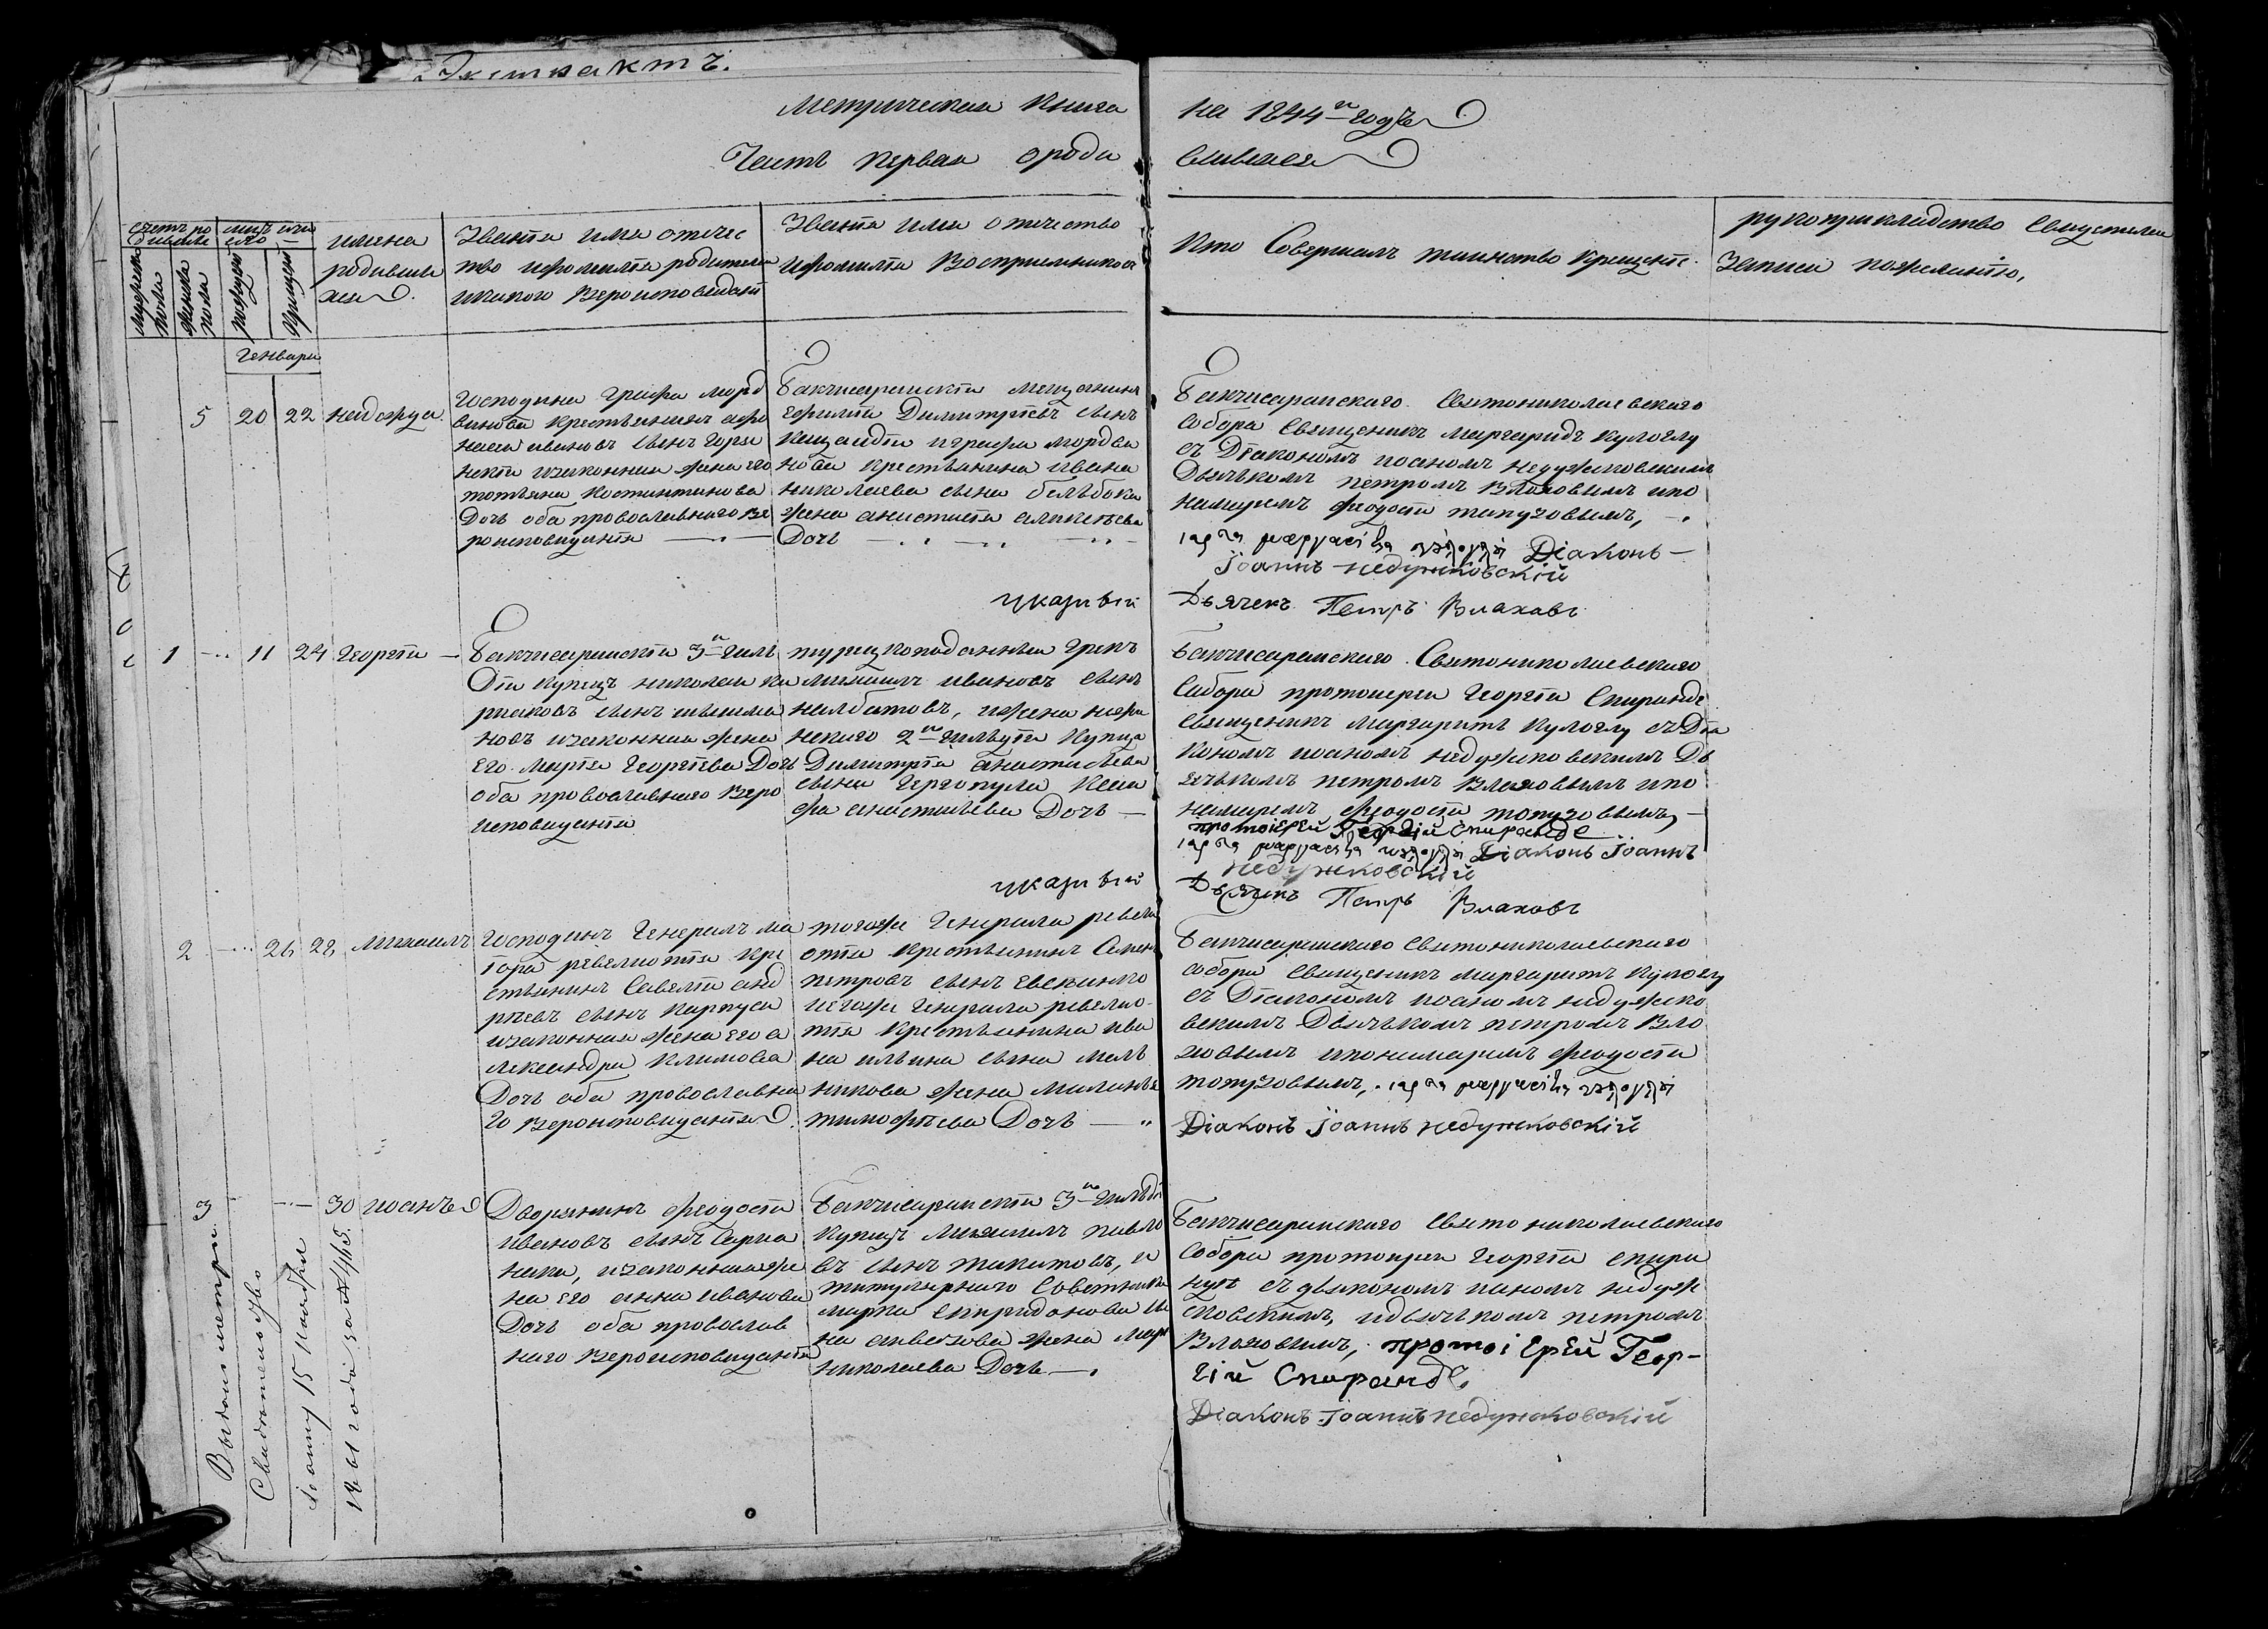 Экстрактъ.
Метрическая Книга на 1844й годъ
Часть первая о роди вшихся
счетъ ро дивши
мужеска пола
женска пола
рожден
крещен
имена родивши хся
Звания имя отчес
тво ифомилия родителеи
икакого Вероисповедани
Звания имя отчество
ифомилия Восприемников
Кто Совершалъ таинство крещения.
рукоприкладство Свидетелеи
Записи пожеланию,
Генваря
5 20 22 надежда
Господина Графа Морд
винова Крестьянинъ афо
насии ивановъ сынъ
изаконная жена его
татьяна Костинтинова
Дочь оба провославнаго Ве
роисповидания
Бакчисараискии мещанинъ
Димитриевъ сынъ
играфа мордви
нова крестьянина ивана
николаева сына
жена анастасия
Дочь
Бакчисараискаго Святониколаевскаго
Собора Священикъ Маргаридъ Кулоглу
съ Дияконамъ иоаномъ недужковскимъ
Дьячькомъ петромъ Влаховымъ ипо
намаремъ феодосия топузовымъ,
Діаконъ
Іоаннъ недужковскій
указный Дьячекъ Петръ Влаховъ
1 11 24 Георгии
Бакчисараискии 3й гиль
дии купецъ николаи ки
риаковъ сынъ
новъ изаконная жена
его Мария Георгиева Дочь
оба провославнаго Веро
исповидания
турецкоподанныи Грекъ
михаилъ ивановъ сынъ
налбатовъ, ижена нежи
нскаго 2й гильдии Купца
Димитрия анастасьева
сына
анастасьева Дочь
Бакчисараискаго Святониколаевскаго
Собора протоиереи Георгии Спиранде
священикъ маргаритъ Кулоглу съ Дия
кономъ иоаномъ недужковскимъ Дь
ячькомъ петромъ Влаховымъ ипо
намаремъ феодосия топузовымъ
протоіерей Георгій Спиранде
Діаконъ Іоаннъ
недужковскій
указный Дьячекъ Петръ Влаховъ
2 26 28 Михаилъ
Господинъ Генералъ ма
иора ревелиотия кре
стьянинъ Савелии анд
реевъ сынъ Карпуса
изаконная жена его а
лександра Климова
Дочь оба провославна
го Вероисповидания
тогоже Генирала ревели
отия Крестьянинъ
петровъ сынъ
иегоже Генирала ревелио
тия Крестьянина ива
на ильина сына мель
никова жена
тимофеева Дочь
Бакчисараискаго Святониколаевскаго
собора Священикъ Маргаритъ Кулоглу
съ Дияконом иоаномъ недужко
вскимъ Дьячькомъ петромъ Вла
ховымъ ипонамаремъ феодосия
топузовымъ,
Діаконъ Іоаннъ недужковскій
3 30 иоанъ
Дворянинъ феодосии
ивановъ сынъ Сариа
наки, изаконная же
на его анна иванова
Дочь оба провослав
наго Вероисповидания
Бакчисараискии 3й гильди
купецъ Михаилъ павло
въ сынъ токатовъ, и
титулярнаго Советника
марка Спиридонова сы
на жена Мария
николаева Дочь
Бакчисараискаго Свято николаевскаго
Собора протоиреи Георгии спира
нде съ дьякономъ иоаномъ недуж
ковскимъ, идьячькомъ петромъ
Влаховымъ, протоіерей Геор-
гій Спиранде
Діаконъ Іоаннъ недужковскій
Выдано метри
Свидетельство
Іоанну 15 Ноября
1861 года за № 445.